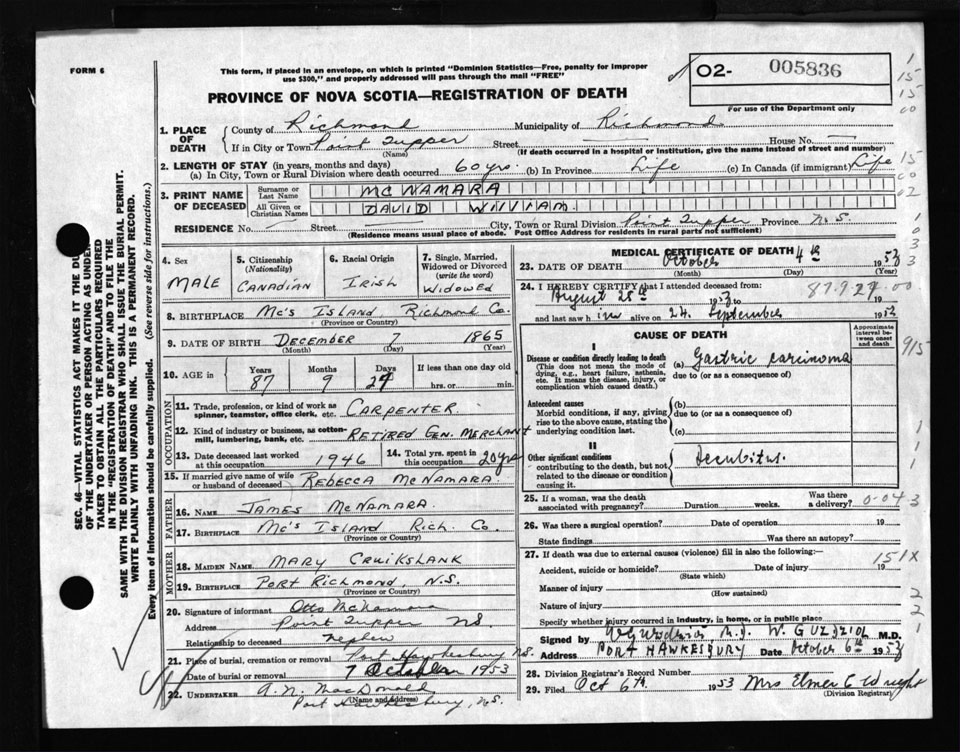 FORM 6
This form, if placed in an envelope, on which is printed "Dominion Statistics—Free, penalty for improper
use $300," and properly addressed will pass through the mail "FREE"
02- 005836
For use of the Department only
PROVINCE OF NOVA SCOTIA—REGISTRATION OF DEATH
1. PLACE OF DEATH
County of Richmond Municipality of Richmond
If in City or Town Point Tupper Street House No. —
(Name) (If death occurred in a hospital or institution, give the name instead of street and number)
2. LENGTH OF STAY (in years, months and days)
(a) In City, Town or Rural Division where death occurred 60 yrs. (b) In Province Life (c) In Canada (if immigrant) Life
3. PRINT NAME OF DECEASED
Surname or Last Name MCNAMARA
All Given or Christian Names DAVID WILLIAM
RESIDENCE No. — Street — City, Town or Rural Division Point Tupper Province N.S.
(Residence means usual place of abode. Post Office Address for residents in rural parts not sufficient)
4. Sex MALE
5. Citizenship (Nationality) CANADIAN
6. Racial Origin IRISH
7. Single, Married, Widowed or Divorced (write the word) WIDOWED
8. BIRTHPLACE Mc's ISLAND, RICHMOND CO.
(Province or Country)
9. DATE OF BIRTH DECEMBER 7 1865
(Month) (Day) (Year)
10. AGE in Years 87 Months 9 Days 27 If less than one day old
hrs. or min.
OCCUPATION
11. Trade, profession, or kind of work as spinner, teamster, office clerk, etc. CARPENTER.
12. Kind of industry or business, as cotton-mill, lumbering, bank, etc. RETIRED GEN. MERCHANT
13. Date deceased last worked at this occupation 1946
14. Total yrs. spent in this occupation 20 yrs
15. If married give name of wife or husband of deceased REBECCA MCNAMARA.
FATHER
16. Name JAMES MCNAMARA.
17. Birthplace Mc's ISLAND RICH. CO.
(Province or Country)
MOTHER
18. MAIDEN NAME MARY CRUIKSLANK
19. BIRTHPLACE PORT RICHMOND, N.S.
(Province or Country)
20. Signature of informant Otto McNamara
Address Point Tupper NS
Relationship to deceased nephew
21. Place of burial, cremation or removal Port Hawkesbury NS.
Date of burial or removal 7 October 1953
22. UNDERTAKER A. N. MacDonald
(Name and Address) Port Hawkesbury, N.S.
MEDICAL CERTIFICATE OF DEATH
23. DATE OF DEATH October 4th 1953
(Month) (Day) (Year)
24. I HEREBY CERTIFY that I attended deceased from:
August 28th 1953 to 19
and last saw him alive on 24. September 1953
CAUSE OF DEATH
Approximate interval between onset and death
I
Disease or condition directly leading to death
(This does not mean the mode of dying, e.g., heart failure, asthenia, etc. It means the disease, injury, or complication which caused death.)
(a) Gastric carcinoma
due to (or as a consequence of)
Antecedent causes
Morbid conditions, if any, giving rise to the above cause, stating the underlying condition last.
(b)
due to (or as a consequence of)
(c)
II
Other significant conditions
contributing to the death, but not related to the disease or condition causing it.
Decubitus.
25. If a woman, was the death associated with pregnancy? Duration weeks. Was there a delivery?
26. Was there a surgical operation? Date of operation 19
State findings Was there an autopsy?
27. If death was due to external causes (violence) fill in also the following:—
Accident, suicide or homicide? Date of injury 19
(State which)
Manner of injury
(How sustained)
Nature of injury
Specify whether injury occurred in industry, in home, or in public place
Signed by W. GUZDZIOL M.D.
Address PORT HAWKESBURY Date October 6th 1953
28. Division Registrar's Record Number
29. Filed Oct 6th. 1953 Mrs Elmer C Wright
(Division Registrar)
SEC. 46—VITAL STATISTICS ACT MAKES IT THE DU
OF THE UNDERTAKER OR PERSON ACTING AS UNDER
TAKER TO OBTAIN ALL THE PARTICULARS REQUIRED
IN THE "REGISTRATION OF DEATH" AND TO FILE THE
SAME WITH THE DIVISION REGISTRAR WHO SHALL ISSUE THE BURIAL PERMIT.
WRITE PLAINLY WITH UNFADING INK. THIS IS A PERMANENT RECORD.
Every item of information should be carefully supplied. (See reverse side for instructions.)